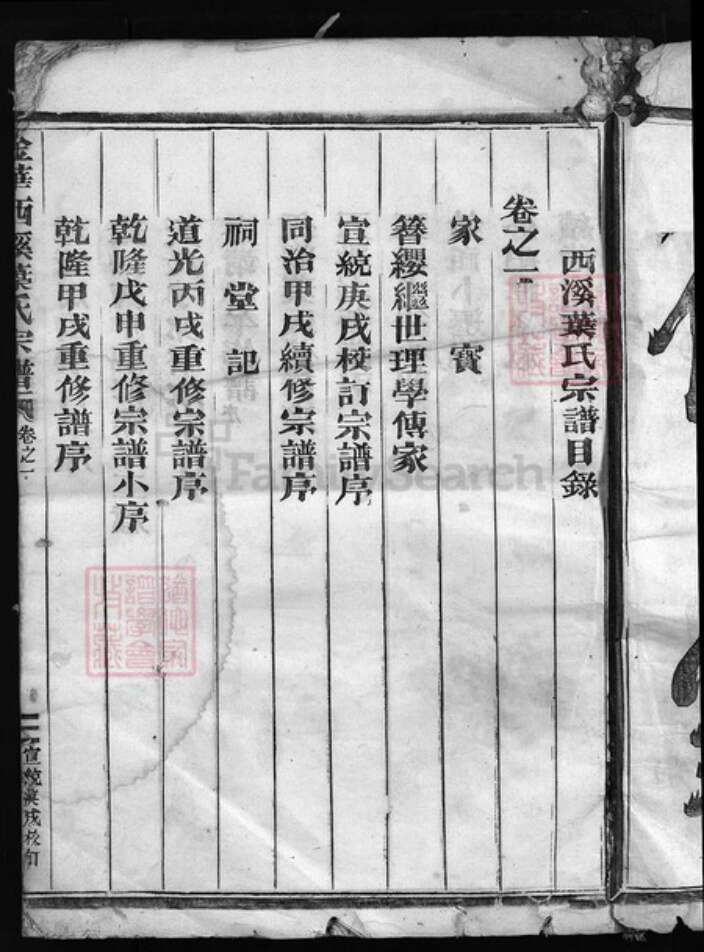 西溪葉氏宗譜目錄
卷之一
家寳
簮纓繼世理學傳家
宣統庚戌校訂宗譜序
同治甲戌續修宗譜序
祠堂記
道光丙戌重修宗譜序
乾隆戊申重修宗譜小序
乾隆甲戌重修譜序
金華西溪葉氏宗譜 卷之一
宣統庚戌校訂
FamilySearch